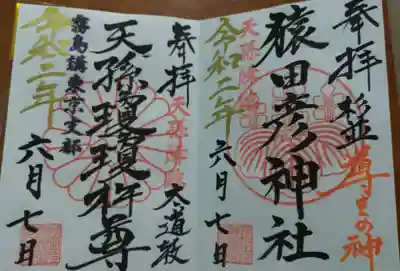 奉拝
杉並
導きの神
猿田彦神社
天孫降臨
令和二年
六月七日
奉拝
天孫降臨
大道教
天孫瓊瓊杵尊
霧島講東京支部
令和二年
六月七日